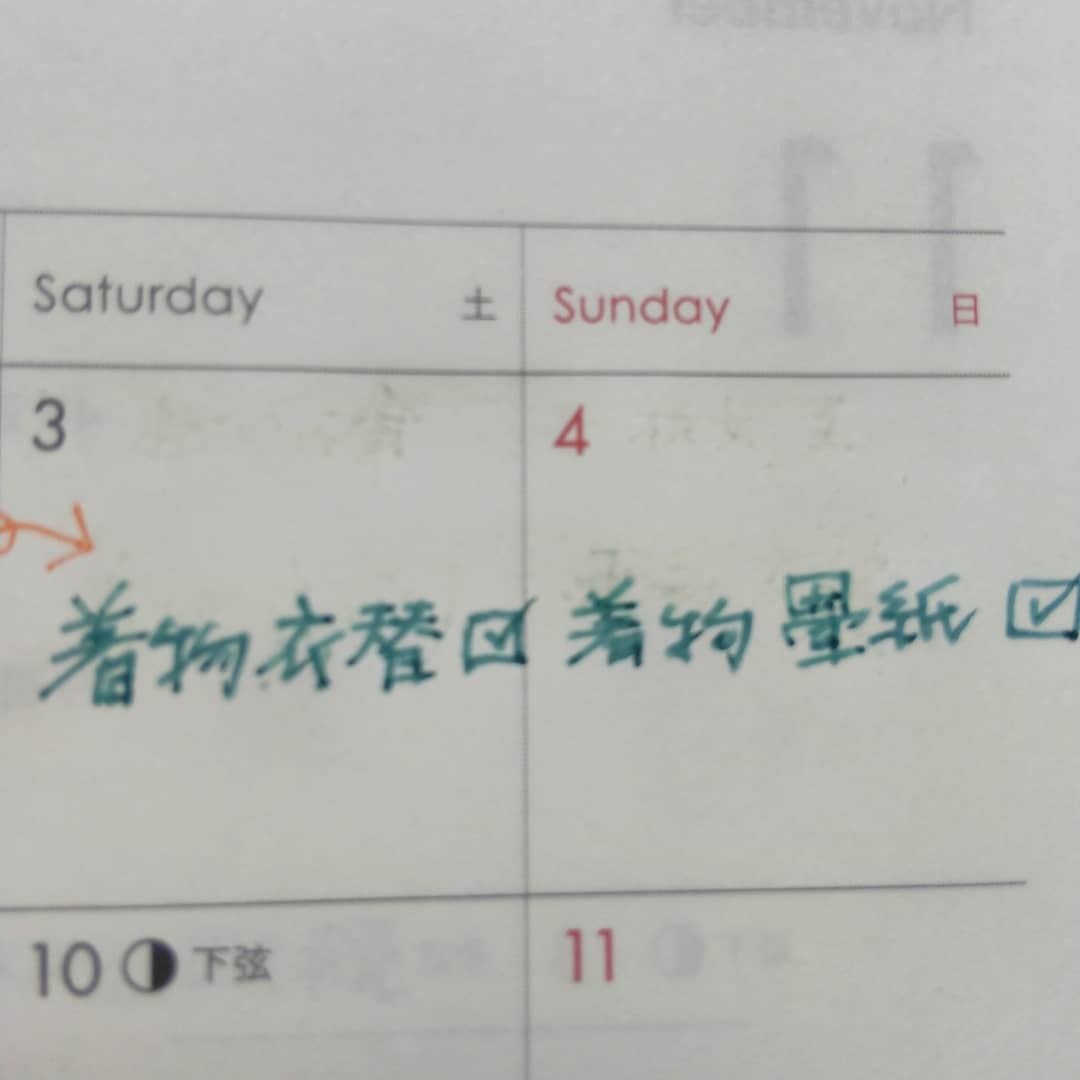 Saturday 土 Sunday 日
3 4
着物衣替☑ 着物畳紙☑
10 下弦 11